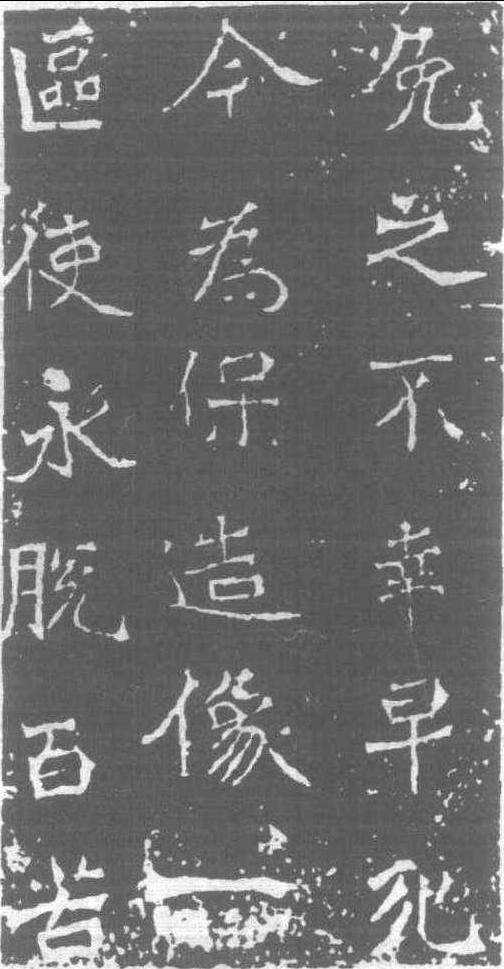 免之不幸早死
今為保造像一
區使永脱百苦